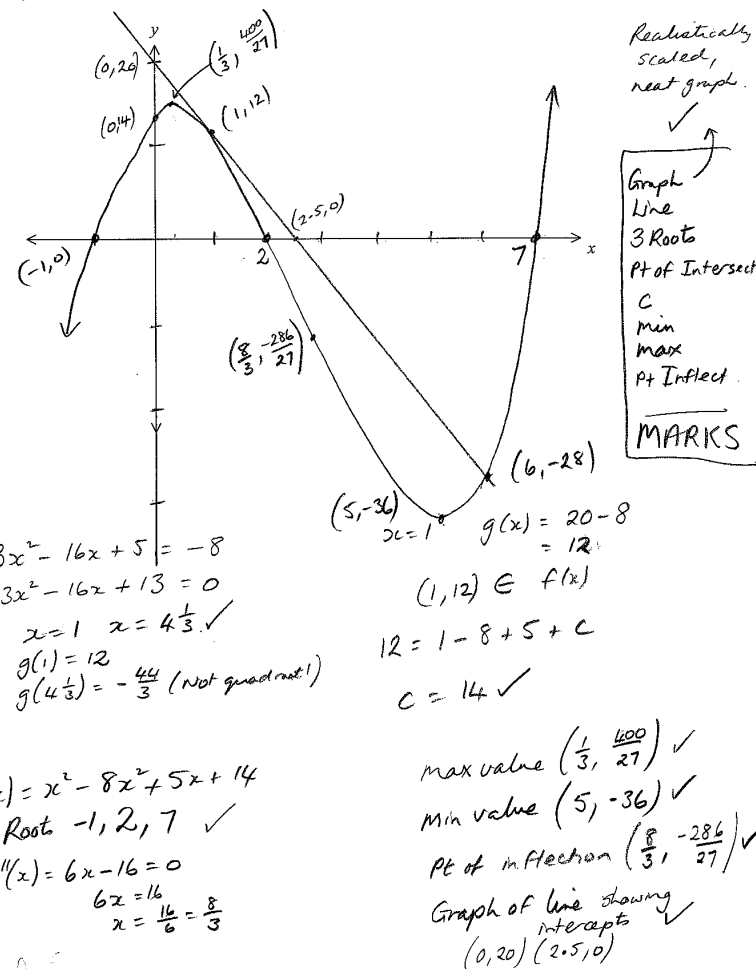 y
(0,20)
(1/3, 400/27)
(0,14)
(1,12)
(2.5,0)
x
(-1,0)
2
7
(8/3, -286/27)
(6,-28)
(5,-36)
Realistically
scaled,
neat graph.
✓
Graph
Line
3 Roots
Pt of Intersect
C
min
max
Pt Inflect.
MARKS
3x² - 16x + 5 = -8
3x² - 16x + 13 = 0
x=1 x = 4 1/3 ✓
g(1) = 12
g(4 1/3) = - 44/3 (Not quadrant 1)
x=1 g(x) = 20-8
= 12
(1,12) ∈ f(x)
12 = 1 - 8 + 5 + C
C = 14 ✓
) = x² - 8x² + 5x + 14
Roots -1, 2, 7 ✓
"(x) = 6x - 16 = 0
6x = 16
x = 16/6 = 8/3
max value (1/3, 400/27) ✓
min value (5, -36) ✓
Pt of inflection (8/3, -286/27) ✓
Graph of line showing
intercepts ✓
(0,20) (2.5,0)